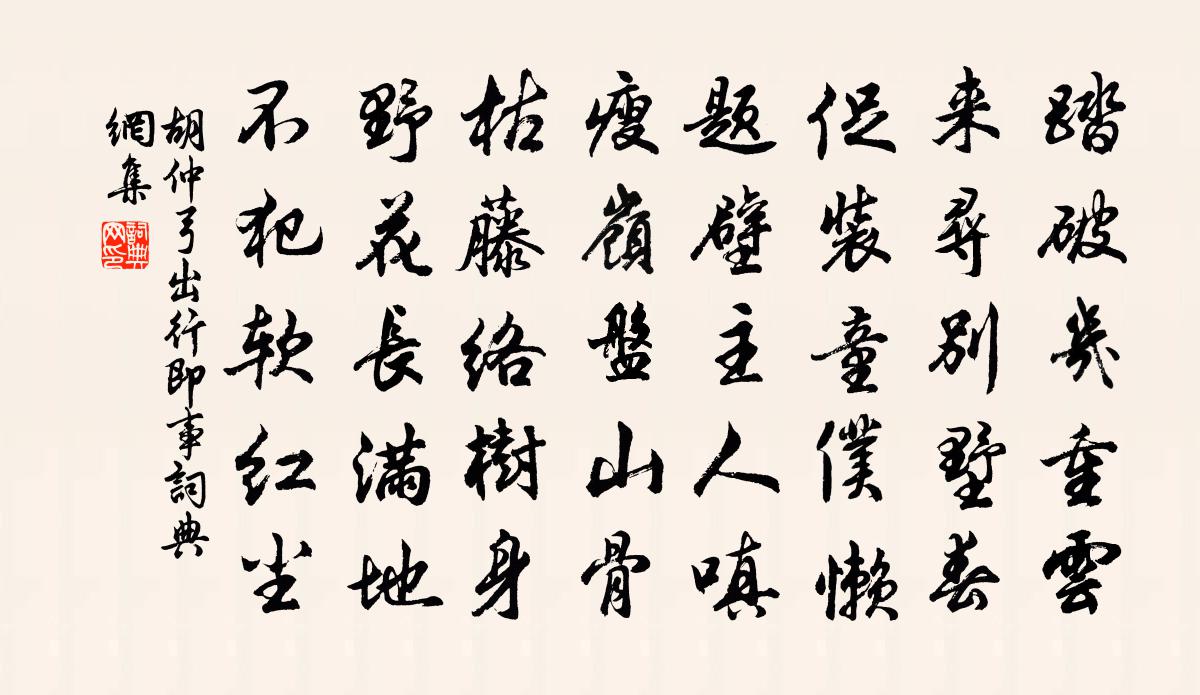 踏破幾重雲
来尋別墅春
促裝童僕懶
題壁主人嗔
瘦嶺盤山骨
枯藤絡樹身
野花長滿地
不犯软红尘
胡仲弓出行即事詞典
網集
詞典
网印